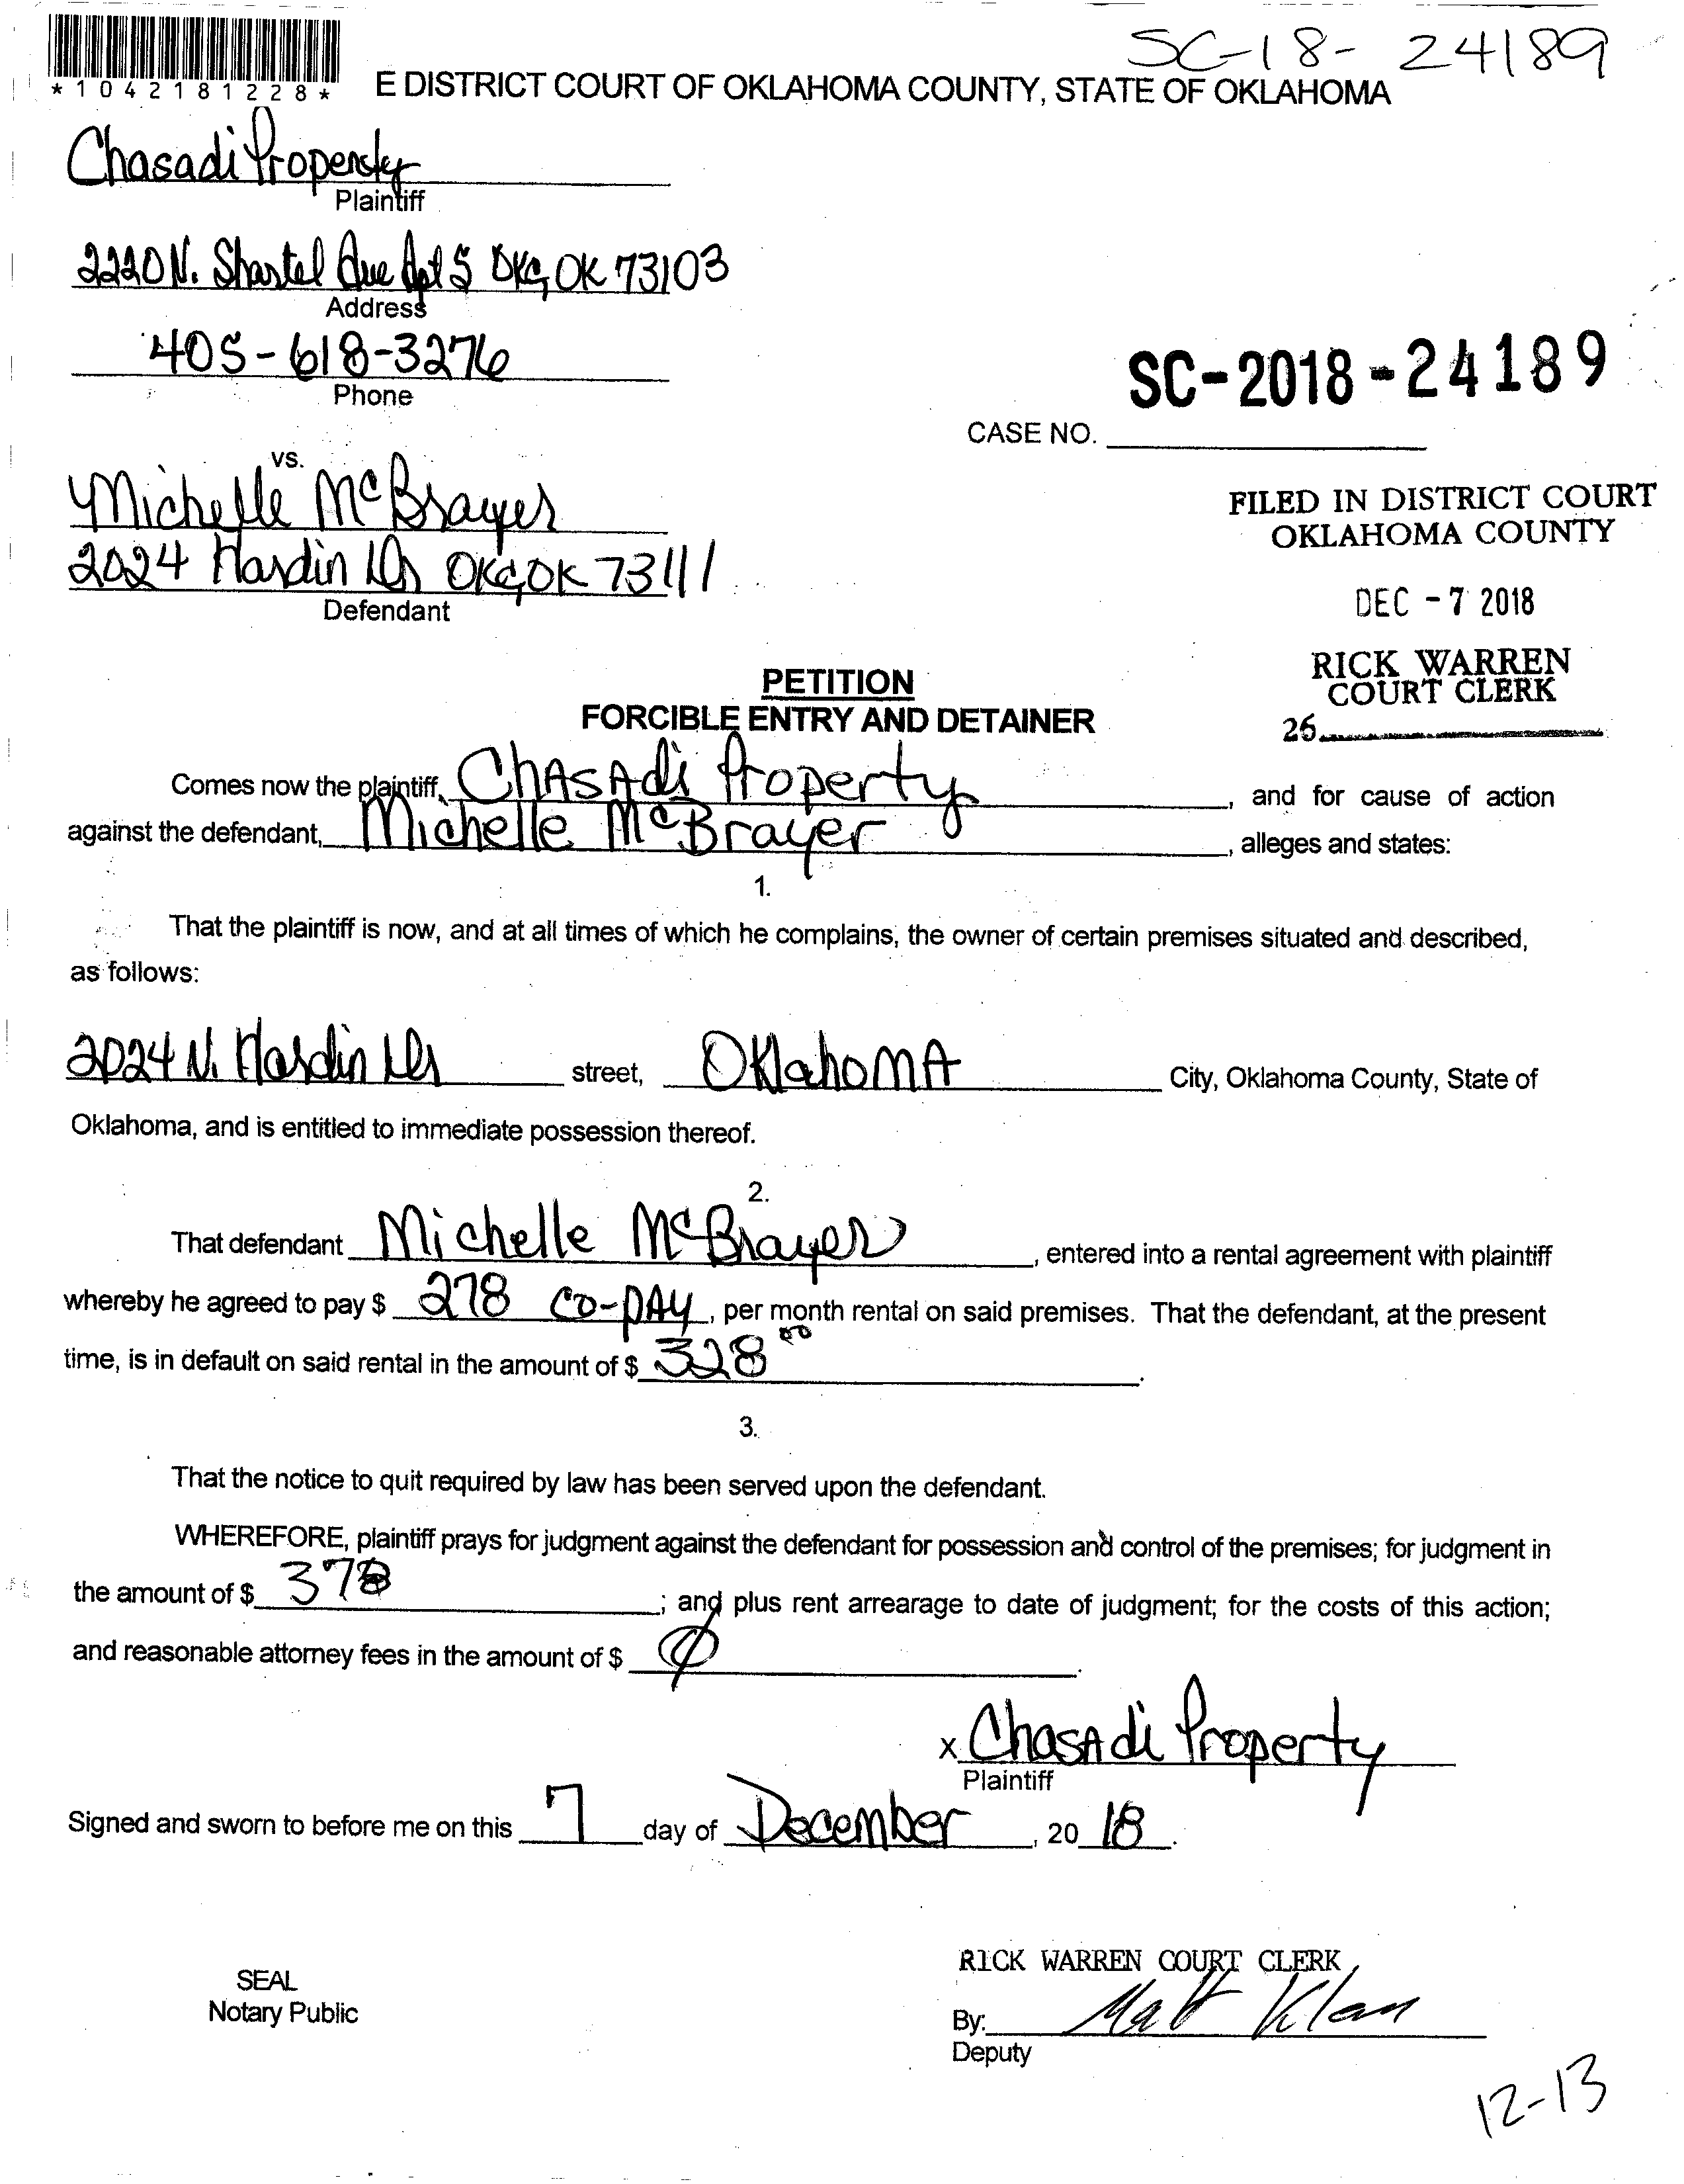 SC-18- 24189
*1042181228*
E DISTRICT COURT OF OKLAHOMA COUNTY, STATE OF OKLAHOMA
Chasadi Property
Plaintiff
2220 N. Shartel Ave Apt 5 OKC, OK 73103
Address
405-618-3276
Phone
SC-2018-24189
CASE NO.
vs.
Michelle McBrayer
2024 Hardin Dr OKC, OK 73111
Defendant
FILED IN DISTRICT COURT
OKLAHOMA COUNTY
DEC -7 2018
RICK WARREN
COURT CLERK
26
PETITION
FORCIBLE ENTRY AND DETAINER
Comes now the plaintiff, ChasAdi Property, and for cause of action
against the defendant, Michelle McBrayer, alleges and states:
1.
That the plaintiff is now, and at all times of which he complains, the owner of certain premises situated and described,
as follows:
2024 N. Hardin Dr street, OklahomA City, Oklahoma County, State of
Oklahoma, and is entitled to immediate possession thereof.
2.
That defendant Michelle McBrayer, entered into a rental agreement with plaintiff
whereby he agreed to pay $ 278 co-pAy, per month rental on said premises. That the defendant, at the present
time, is in default on said rental in the amount of $ 328 00.
3.
That the notice to quit required by law has been served upon the defendant.
WHEREFORE, plaintiff prays for judgment against the defendant for possession and control of the premises; for judgment in
the amount of $ 378; and plus rent arrearage to date of judgment; for the costs of this action;
and reasonable attorney fees in the amount of $ 0.
x ChasAdi Property
Plaintiff
Signed and sworn to before me on this 7 day of December, 20 18.
RICK WARREN COURT CLERK
SEAL
Notary Public
By:
Deputy
12-13